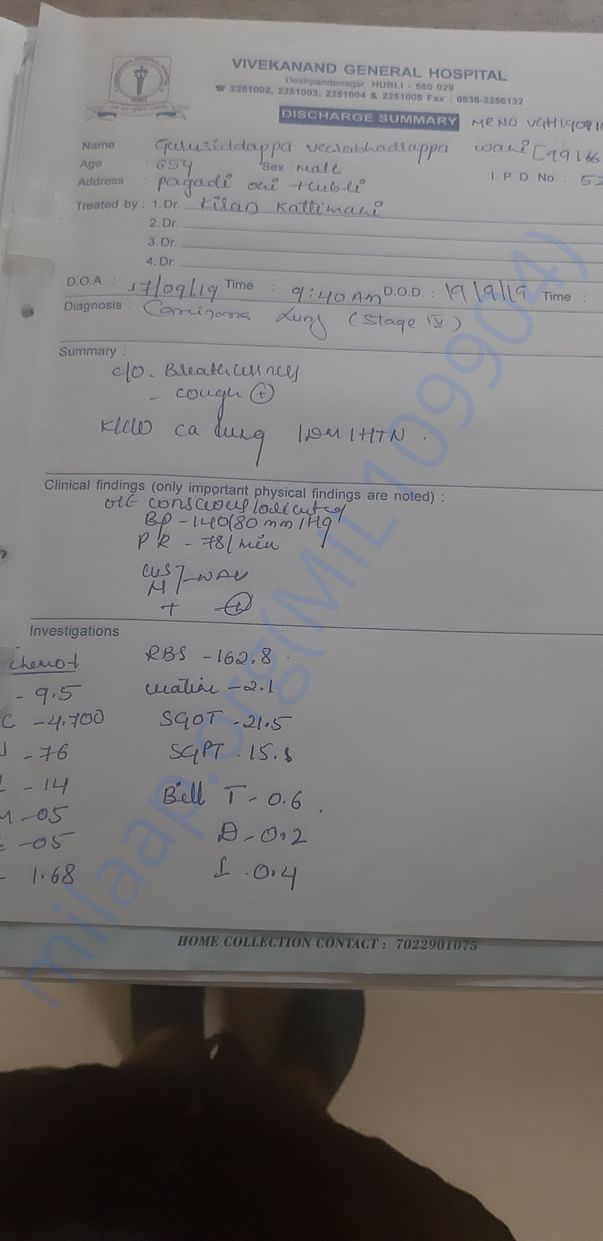 VIVEKANAND GENERAL HOSPITAL
Deshpandenagar, HUBLI - 580 029
☎ 2251002, 2251003, 2251004 & 2251005 Fax : 0836-2256132
DISCHARGE SUMMARY MR NO VGH19091
Name : Gurusiddappa Veerabhadrappa wani
Age : 65Y Sex : male
I. P. D. No. : 52
Address : pagadi oni Hubli
Treated by : 1. Dr. Kiran Kattimani
2. Dr.
3. Dr.
4. Dr.
D.O.A : 17/09/19 Time : 9:40 AM D.O.D. : 19/9/19 Time :
Diagnosis : Carcinoma Lung (Stage IV)
Summary :
c/o - Breathlessness
- cough (+)
K/C/O ca lung / DM / HTN .
Clinical findings (only important physical findings are noted) :
O/E conscious/oriented
BP - 140/80 mm/Hg
PR - 78/min
CVS
Investigations
chemo-1 RBS - 162.8
- 9.5 creatine - 2.1
C - 4.700 SGOT - 21.5
- 76 SGPT . 15.8
- 14 Bill T - 0.6
- 05 D - 0.2
- 05 I . 0.4
- 1.68
HOME COLLECTION CONTACT : 7022901075
milaap.org(MIL1099904)